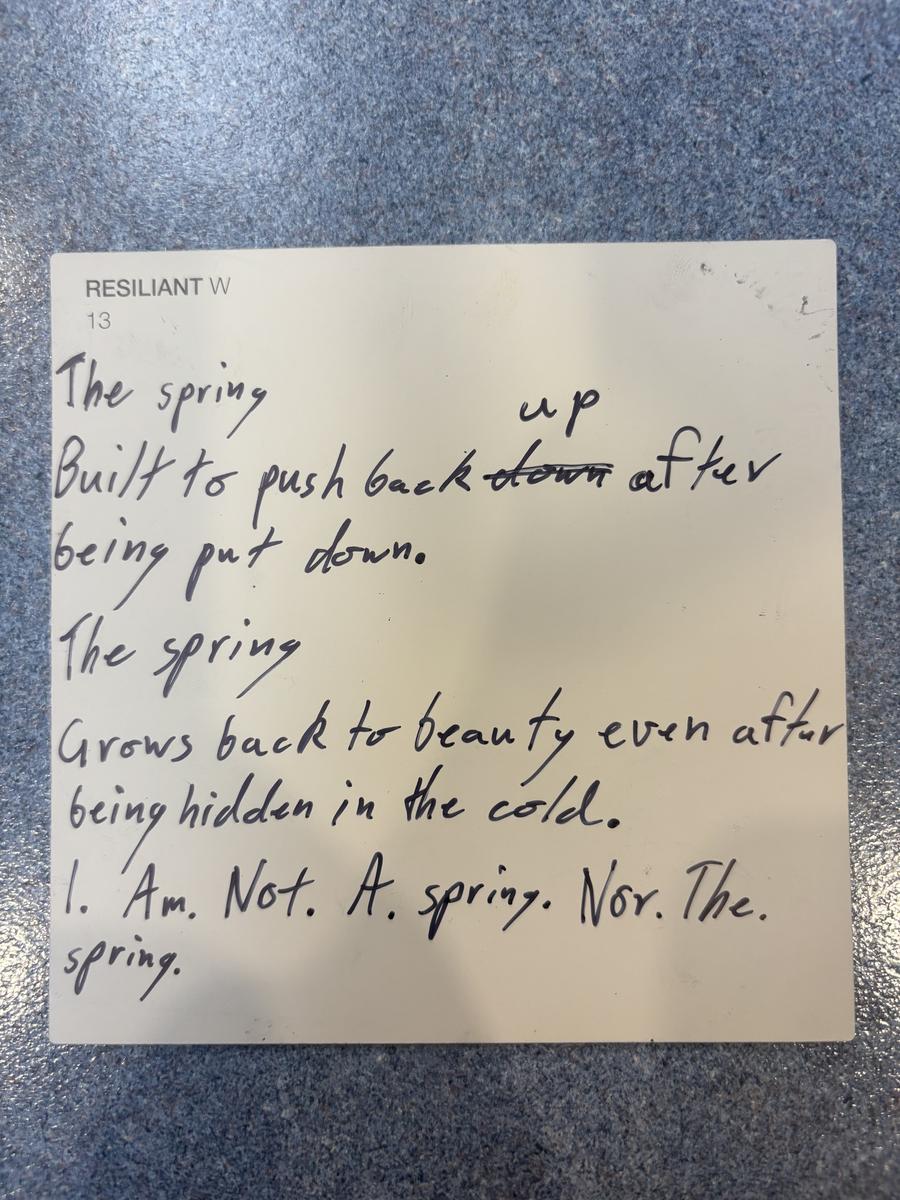 RESILIANT W
13
The spring
up
Built to push back down after
being put down.
The spring
Grows back to beauty even after
being hidden in the cold.
I. Am. Not. A. spring. Nor. The.
spring.